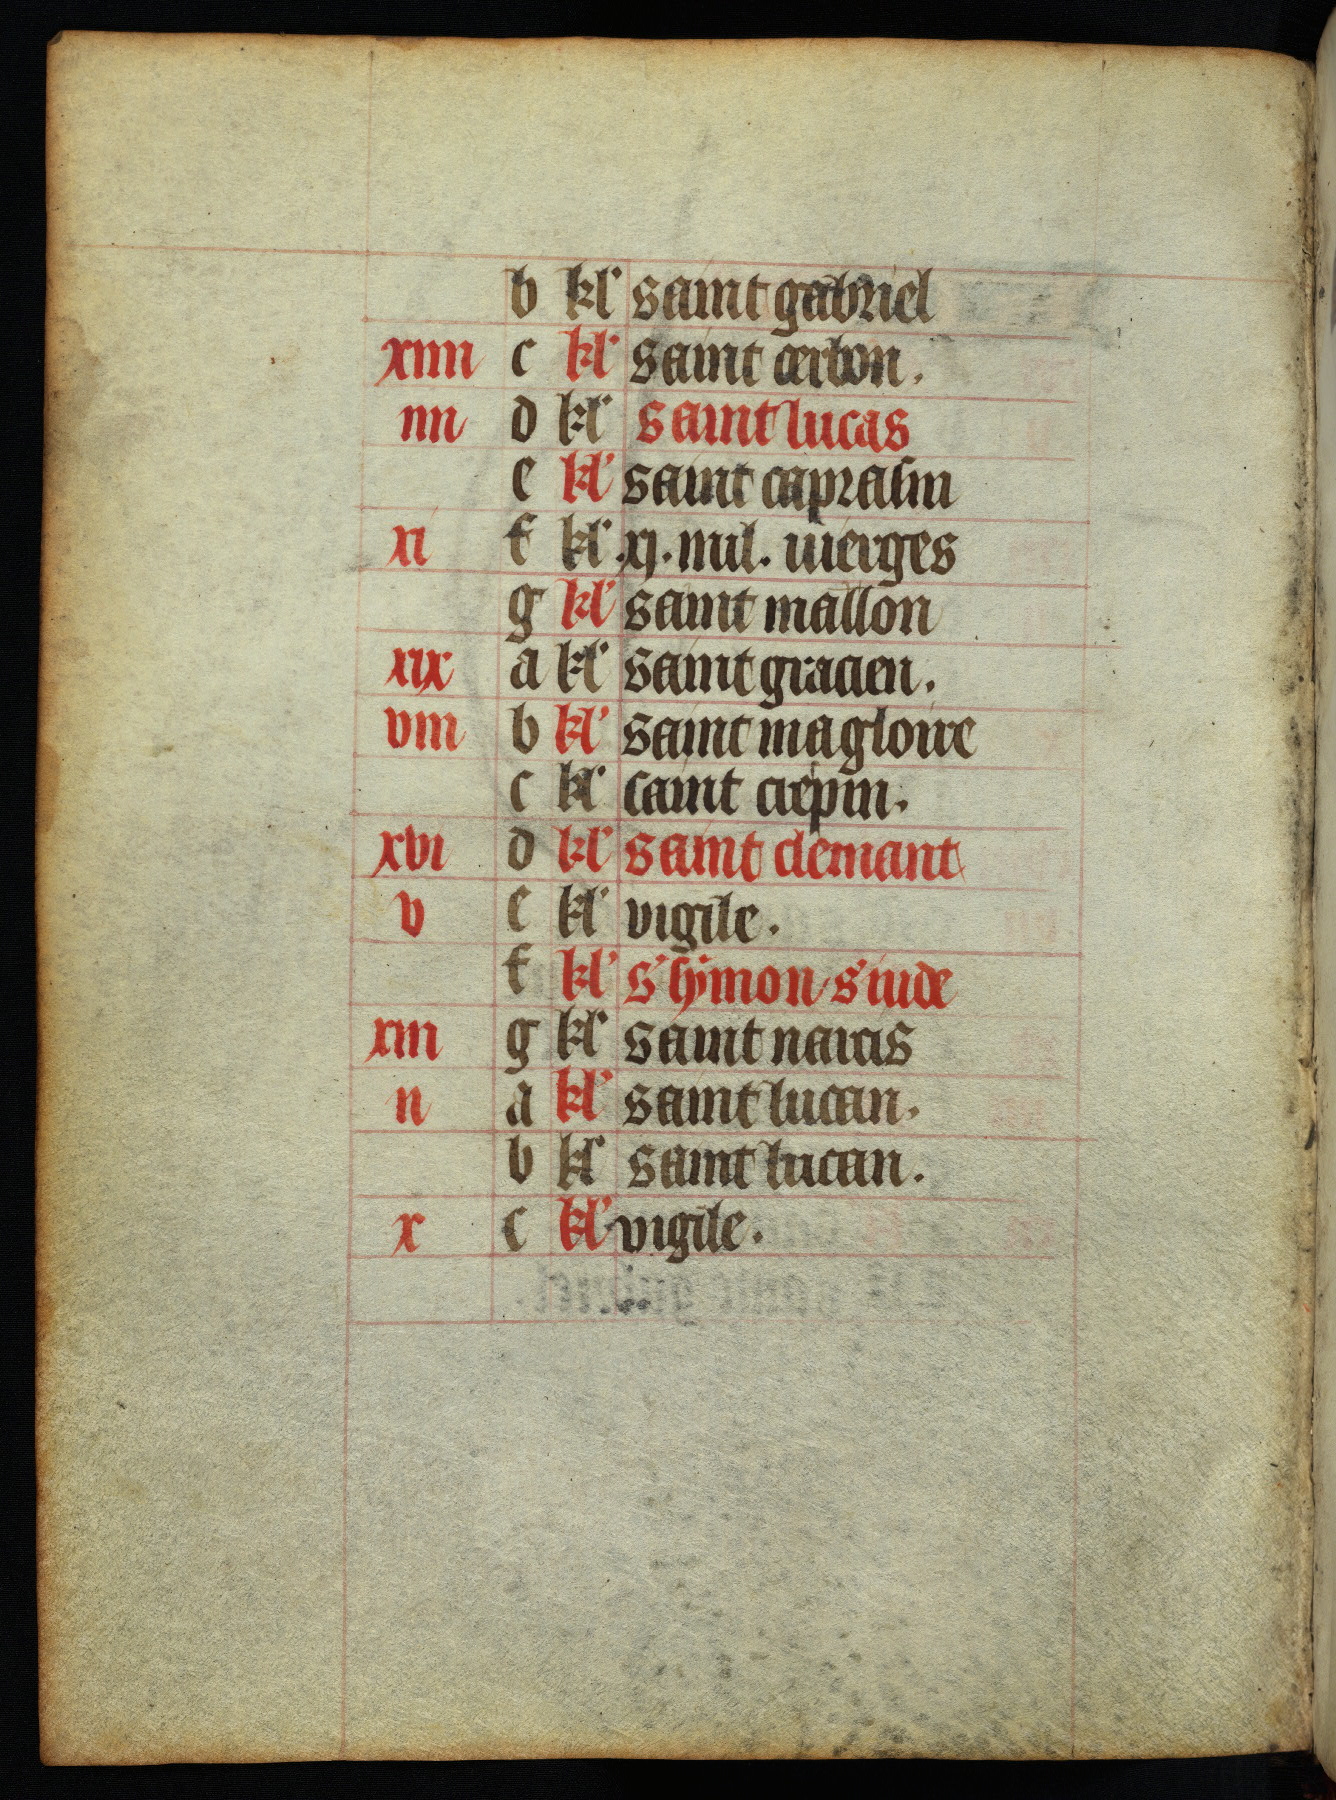 b kl' saint gabriel
xiiii c kl' saint cerbon.
iiii d kl' saint lucas
e kl' saint caprasin
xi f kl' .xj. mil. uierges
g kl' saint mallon
xix a kl' saint gracien.
viii b kl' saint magloire
c kl' saint crepin.
xvi d kl' saint demant
v e kl' vigile.
f kl' s' symon s' iude
xiii g kl' saint narcis
ii a kl' saint lucan.
b kl' saint lucan.
x c kl' vigile.